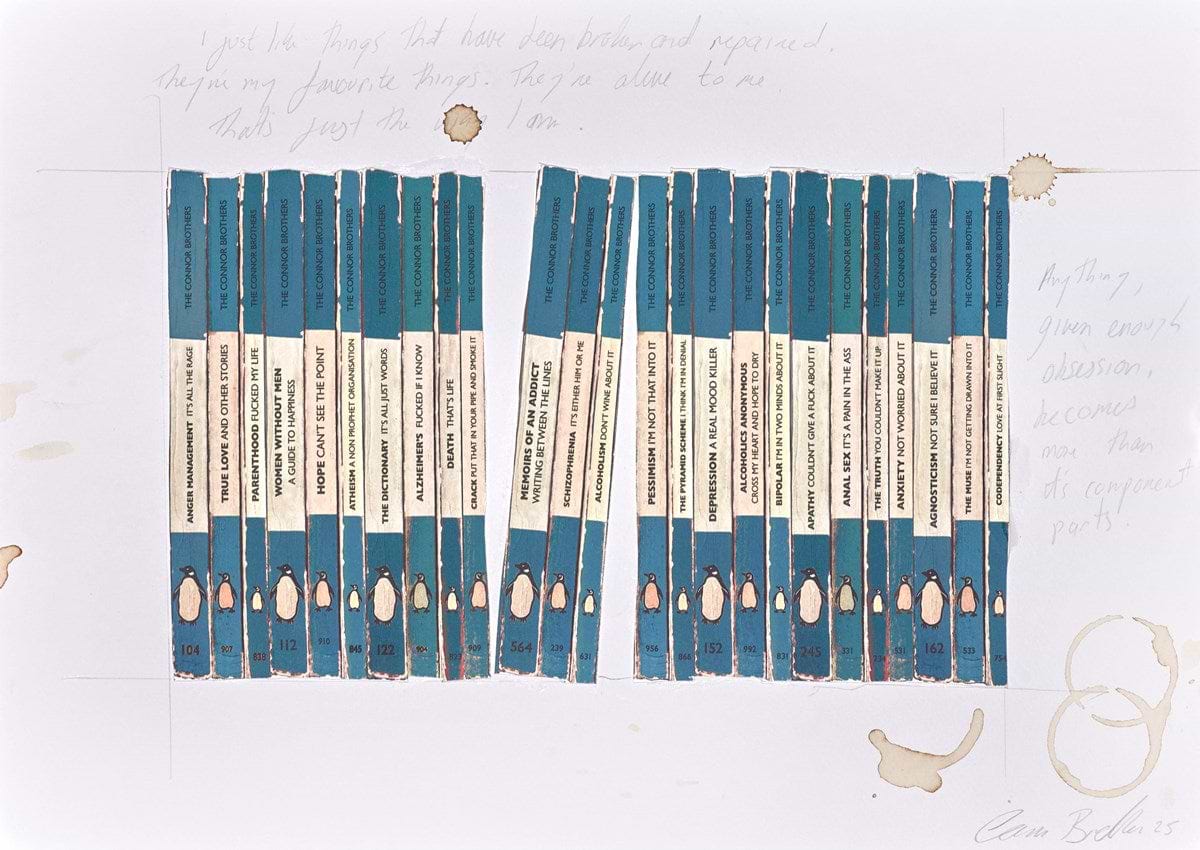 I just like things that have been broken and repaired.
They're my favourite things. They're alive to me.
That's just the way I am.
THE CONNOR BROTHERS
ANGER MANAGEMENT IT'S ALL THE RAGE
104
THE CONNOR BROTHERS
TRUE LOVE AND OTHER STORIES
907
THE CONNOR BROTHERS
PARENTHOOD FUCKED MY LIFE
838
THE CONNOR BROTHERS
WOMEN WITHOUT MEN
A GUIDE TO HAPPINESS
112
THE CONNOR BROTHERS
HOPE CAN'T SEE THE POINT
910
THE CONNOR BROTHERS
ATHEISM A NON PROPHET ORGANISATION
845
THE CONNOR BROTHERS
THE DICTIONARY IT'S ALL JUST WORDS
122
THE CONNOR BROTHERS
ALZHEIMER'S FUCKED IF I KNOW
904
THE CONNOR BROTHERS
DEATH THAT'S LIFE
THE CONNOR BROTHERS
CRACK PUT THAT IN YOUR PIPE AND SMOKE IT
909
THE CONNOR BROTHERS
MEMOIRS OF AN ADDICT
WRITING BETWEEN THE LINES
564
THE CONNOR BROTHERS
SCHIZOPHRENIA IT'S EITHER HIM OR ME
239
THE CONNOR BROTHERS
ALCOHOLISM DON'T WINE ABOUT IT
631
THE CONNOR BROTHERS
PESSIMISM I'M NOT THAT INTO IT
956
THE CONNOR BROTHERS
THE PYRAMID SCHEME I THINK I'M IN DENIAL
866
THE CONNOR BROTHERS
DEPRESSION A REAL MOOD KILLER
152
THE CONNOR BROTHERS
ALCOHOLICS ANONYMOUS
CROSS MY HEART AND HOPE TO DRY
992
THE CONNOR BROTHERS
BIPOLAR I'M IN TWO MINDS ABOUT IT
831
THE CONNOR BROTHERS
APATHY COULDN'T GIVE A FUCK ABOUT IT
245
THE CONNOR BROTHERS
ANAL SEX IT'S A PAIN IN THE ASS
331
THE CONNOR BROTHERS
THE TRUTH YOU COULDN'T MAKE IT UP
THE CONNOR BROTHERS
ANXIETY NOT WORRIED ABOUT IT
531
THE CONNOR BROTHERS
AGNOSTICISM NOT SURE I BELIEVE IT
162
THE CONNOR BROTHERS
THE MUSE I'M NOT GETTING DRAWN INTO IT
533
THE CONNOR BROTHERS
CODEPENDENCY LOVE AT FIRST SLIGHT
754
Anything,
given enough
obsession,
becomes
more than
it's component
parts.
25